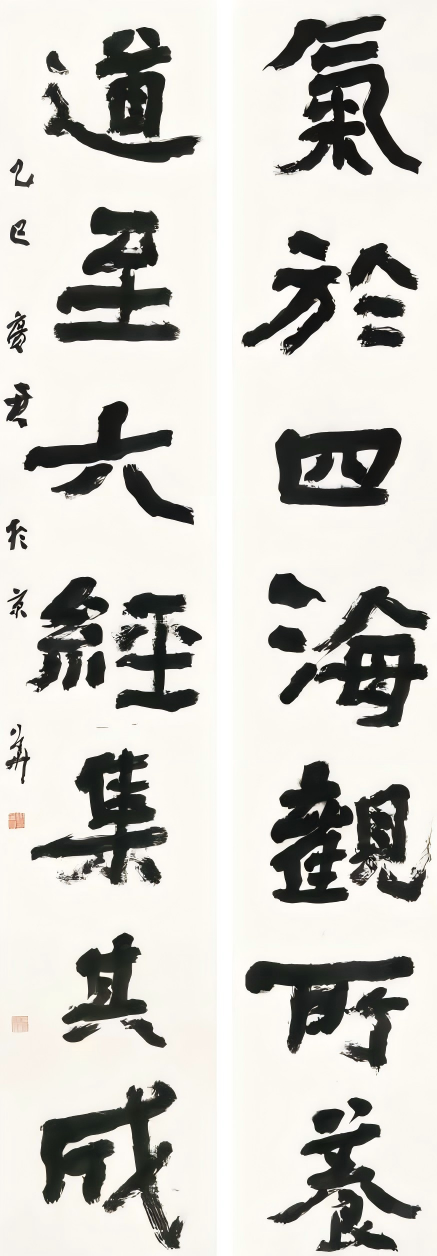 氣於四海觀所養
道至六經集其成
乙巳夏月於京